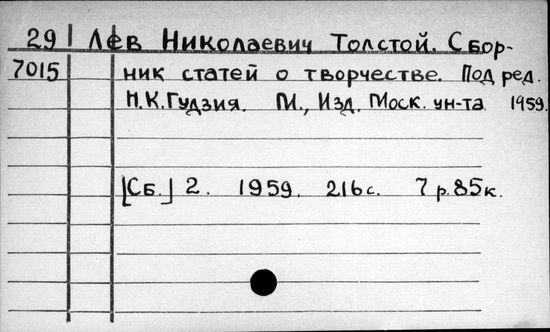 29 Лев Николаевич Толстой. Сбор-
7015 ник статей о творчестве. Под ред.
Н.К.Гудзия. М., Изд. Моск. ун-та 1959.
[Сб.] 2. 1959. 216 с. 7 р. 85 к.